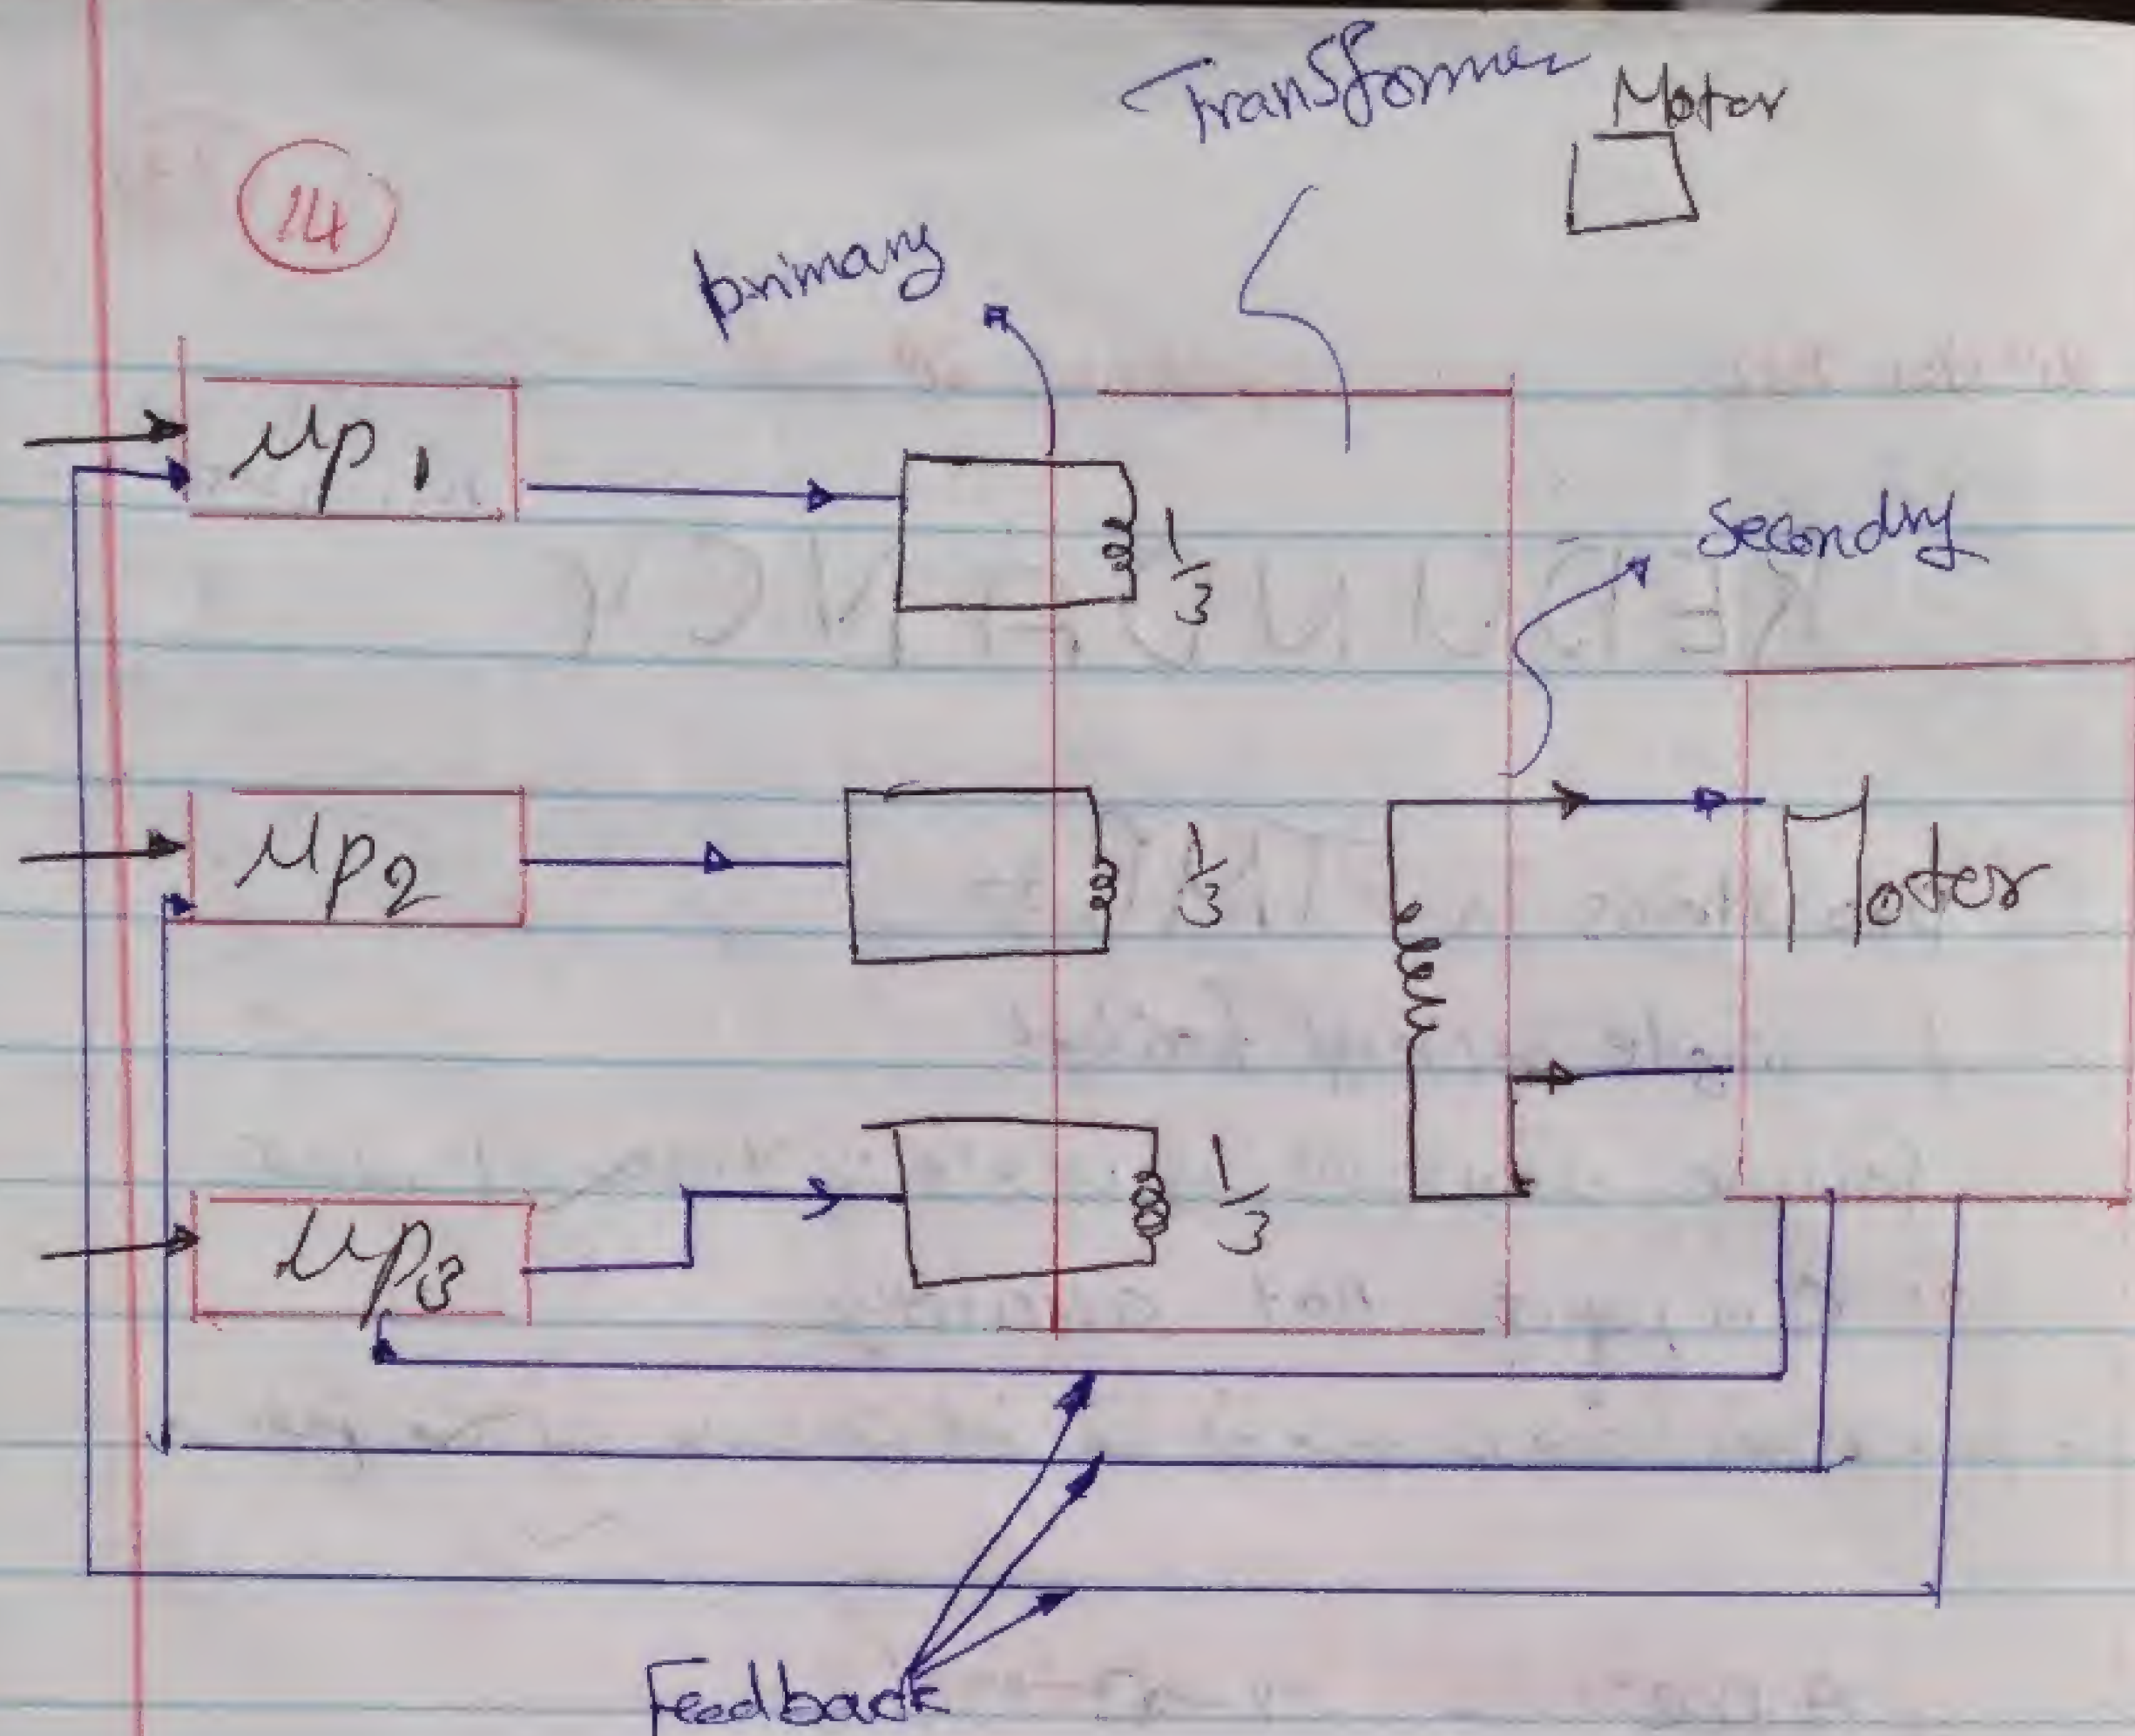 Transformer
Motor
14
primary
μp1
1/3
Secondry
μp2
1/3
Motor
μp3
1/3
Feedback